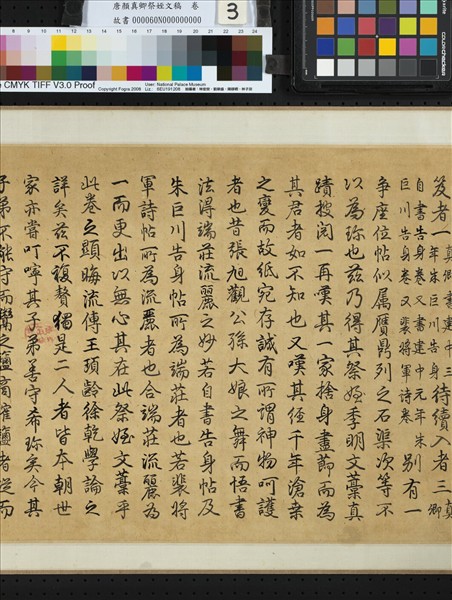 唐顏真卿祭姪文稿 卷
故書 000060N000000000
3
8 9 10 11 12 13 14 15 16 17 18 19 20 21 22 23 24
CMYK TIFF V3.0 Proof
Copyright Fogra 2008
User: National Palace Museum
Liz.: 6EU191208
笈者一真卿書建中三年朱巨川告身待續入者三真卿
自書告身卷又書建中元年朱巨川告身卷又裴將軍詩卷別有一
爭座位帖似屬贋鼎列之石渠次等不
以為珍也茲乃得其祭姪季明文藁真
蹟披閱一再嘆其一家捨身盡節而為
其君者如不知也又嘆其經千年滄桒
之變而故紙宛存誠有所謂神物呵護
者也昔張旭觀公孫大娘之舞而悟書
法得端莊流麗之妙若自書告身帖及
朱巨川告身帖所為端莊者也若裴將
軍詩帖所為流麗者也合端莊流麗為
一而更出以無心其在此祭姪文藁乎
此卷之顯晦流傳王頊齡徐乾學論之
詳矣茲不複贅獨是二人者皆本朝世
家亦嘗叮嚀其子弟善守希珍矣今其
子弟不能守而鬻之鹽商鹽者從而